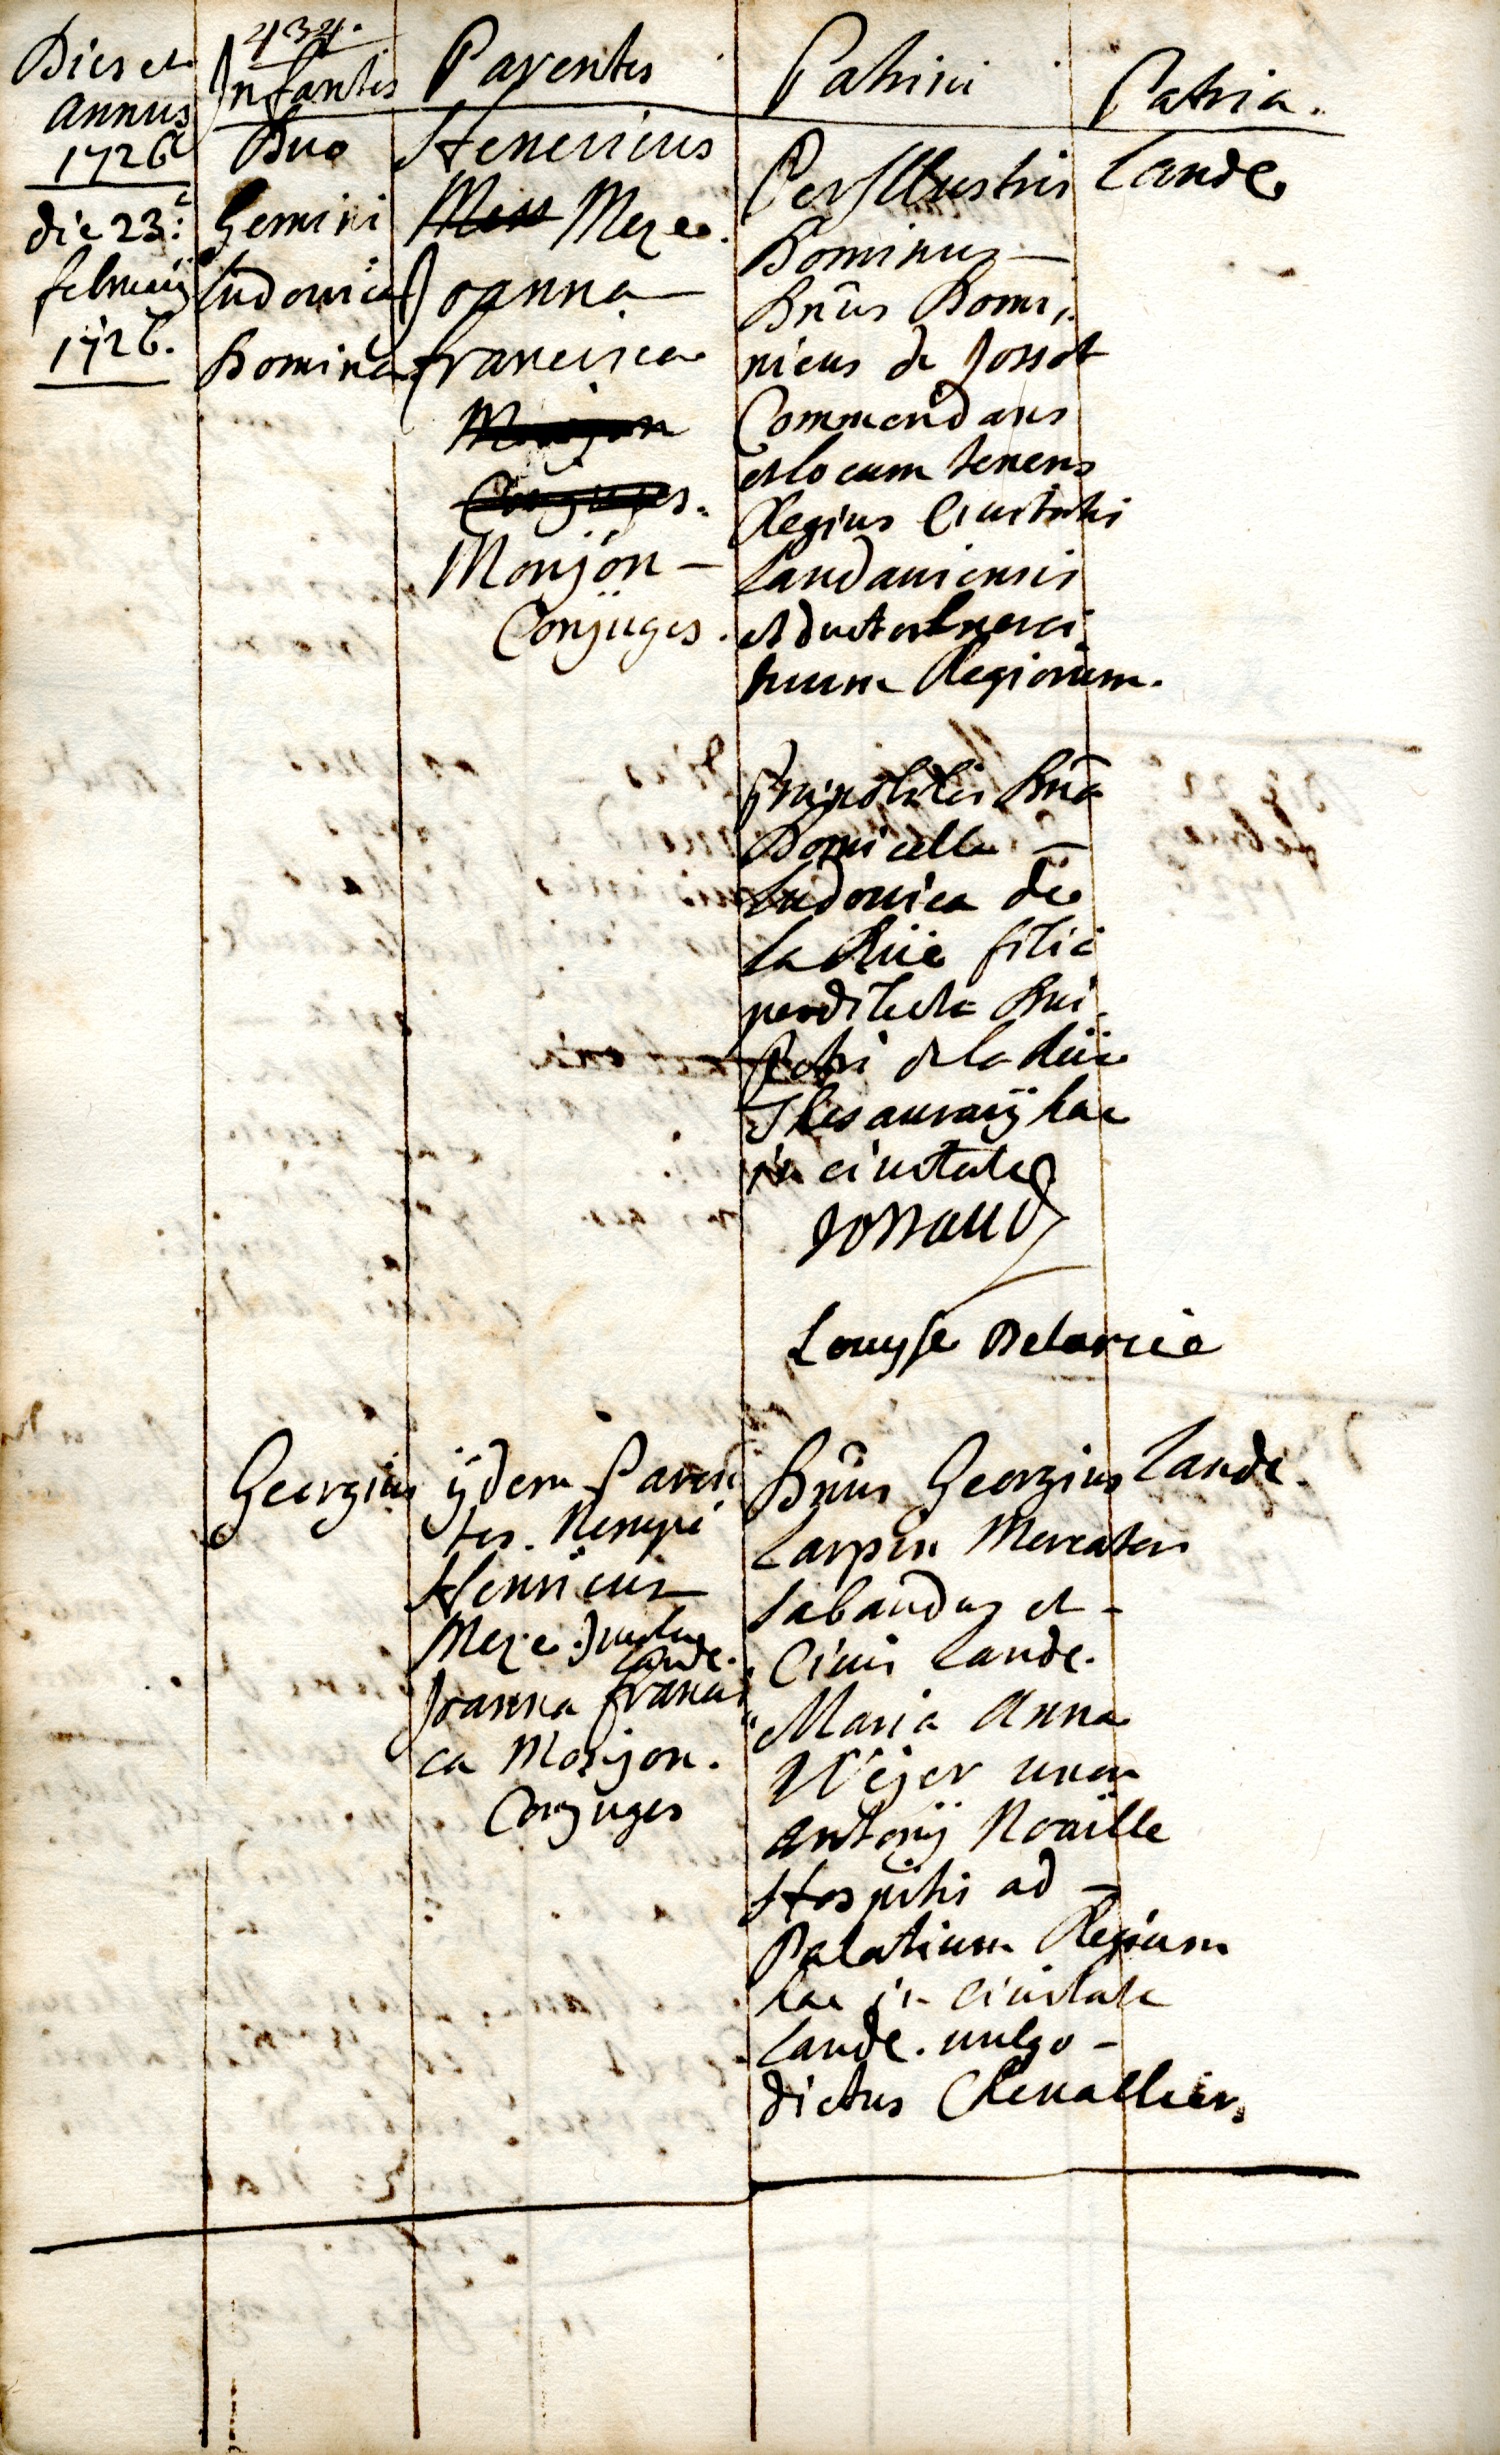 434.
Dies et
annus
1726
die 23:
februarij
1726.
Infantes
Duo
Gemini
Ludovica
Dominica
Parentes
Henericus
Meze.
Joanna
francisca
Monjon
Conjuges.
Patrini
Perillustris
Dominus
Dnus Domi,
nicus de Jossot
Commendans
et locum tenens
Regius Civitatis
Landaviensis
et ductor
Regiorum.
Prænobilis Dna
Domicella
Ludovica de
La Rüe filia
perdilecta Dni
Petri de la Rüe
Thesaurarij hac
in civitate
Jossaud
Louysse Delarüe
Patria.
Lande
Georgius
ijdem Paren
tes. Nempe
Henricus
Meze
Lande.
Joanna francis
ca Monjon.
Conjuges
Dnus Georgius
Carpin Mercator
Sabaudus et
Civis Lande.
Maria Anna
Wejer uxor
Antonij Noaille
Hospitis ad
Palatium Regium
hac in Civitate
Lande. vulgo
dictus Chevallier.
Lande.